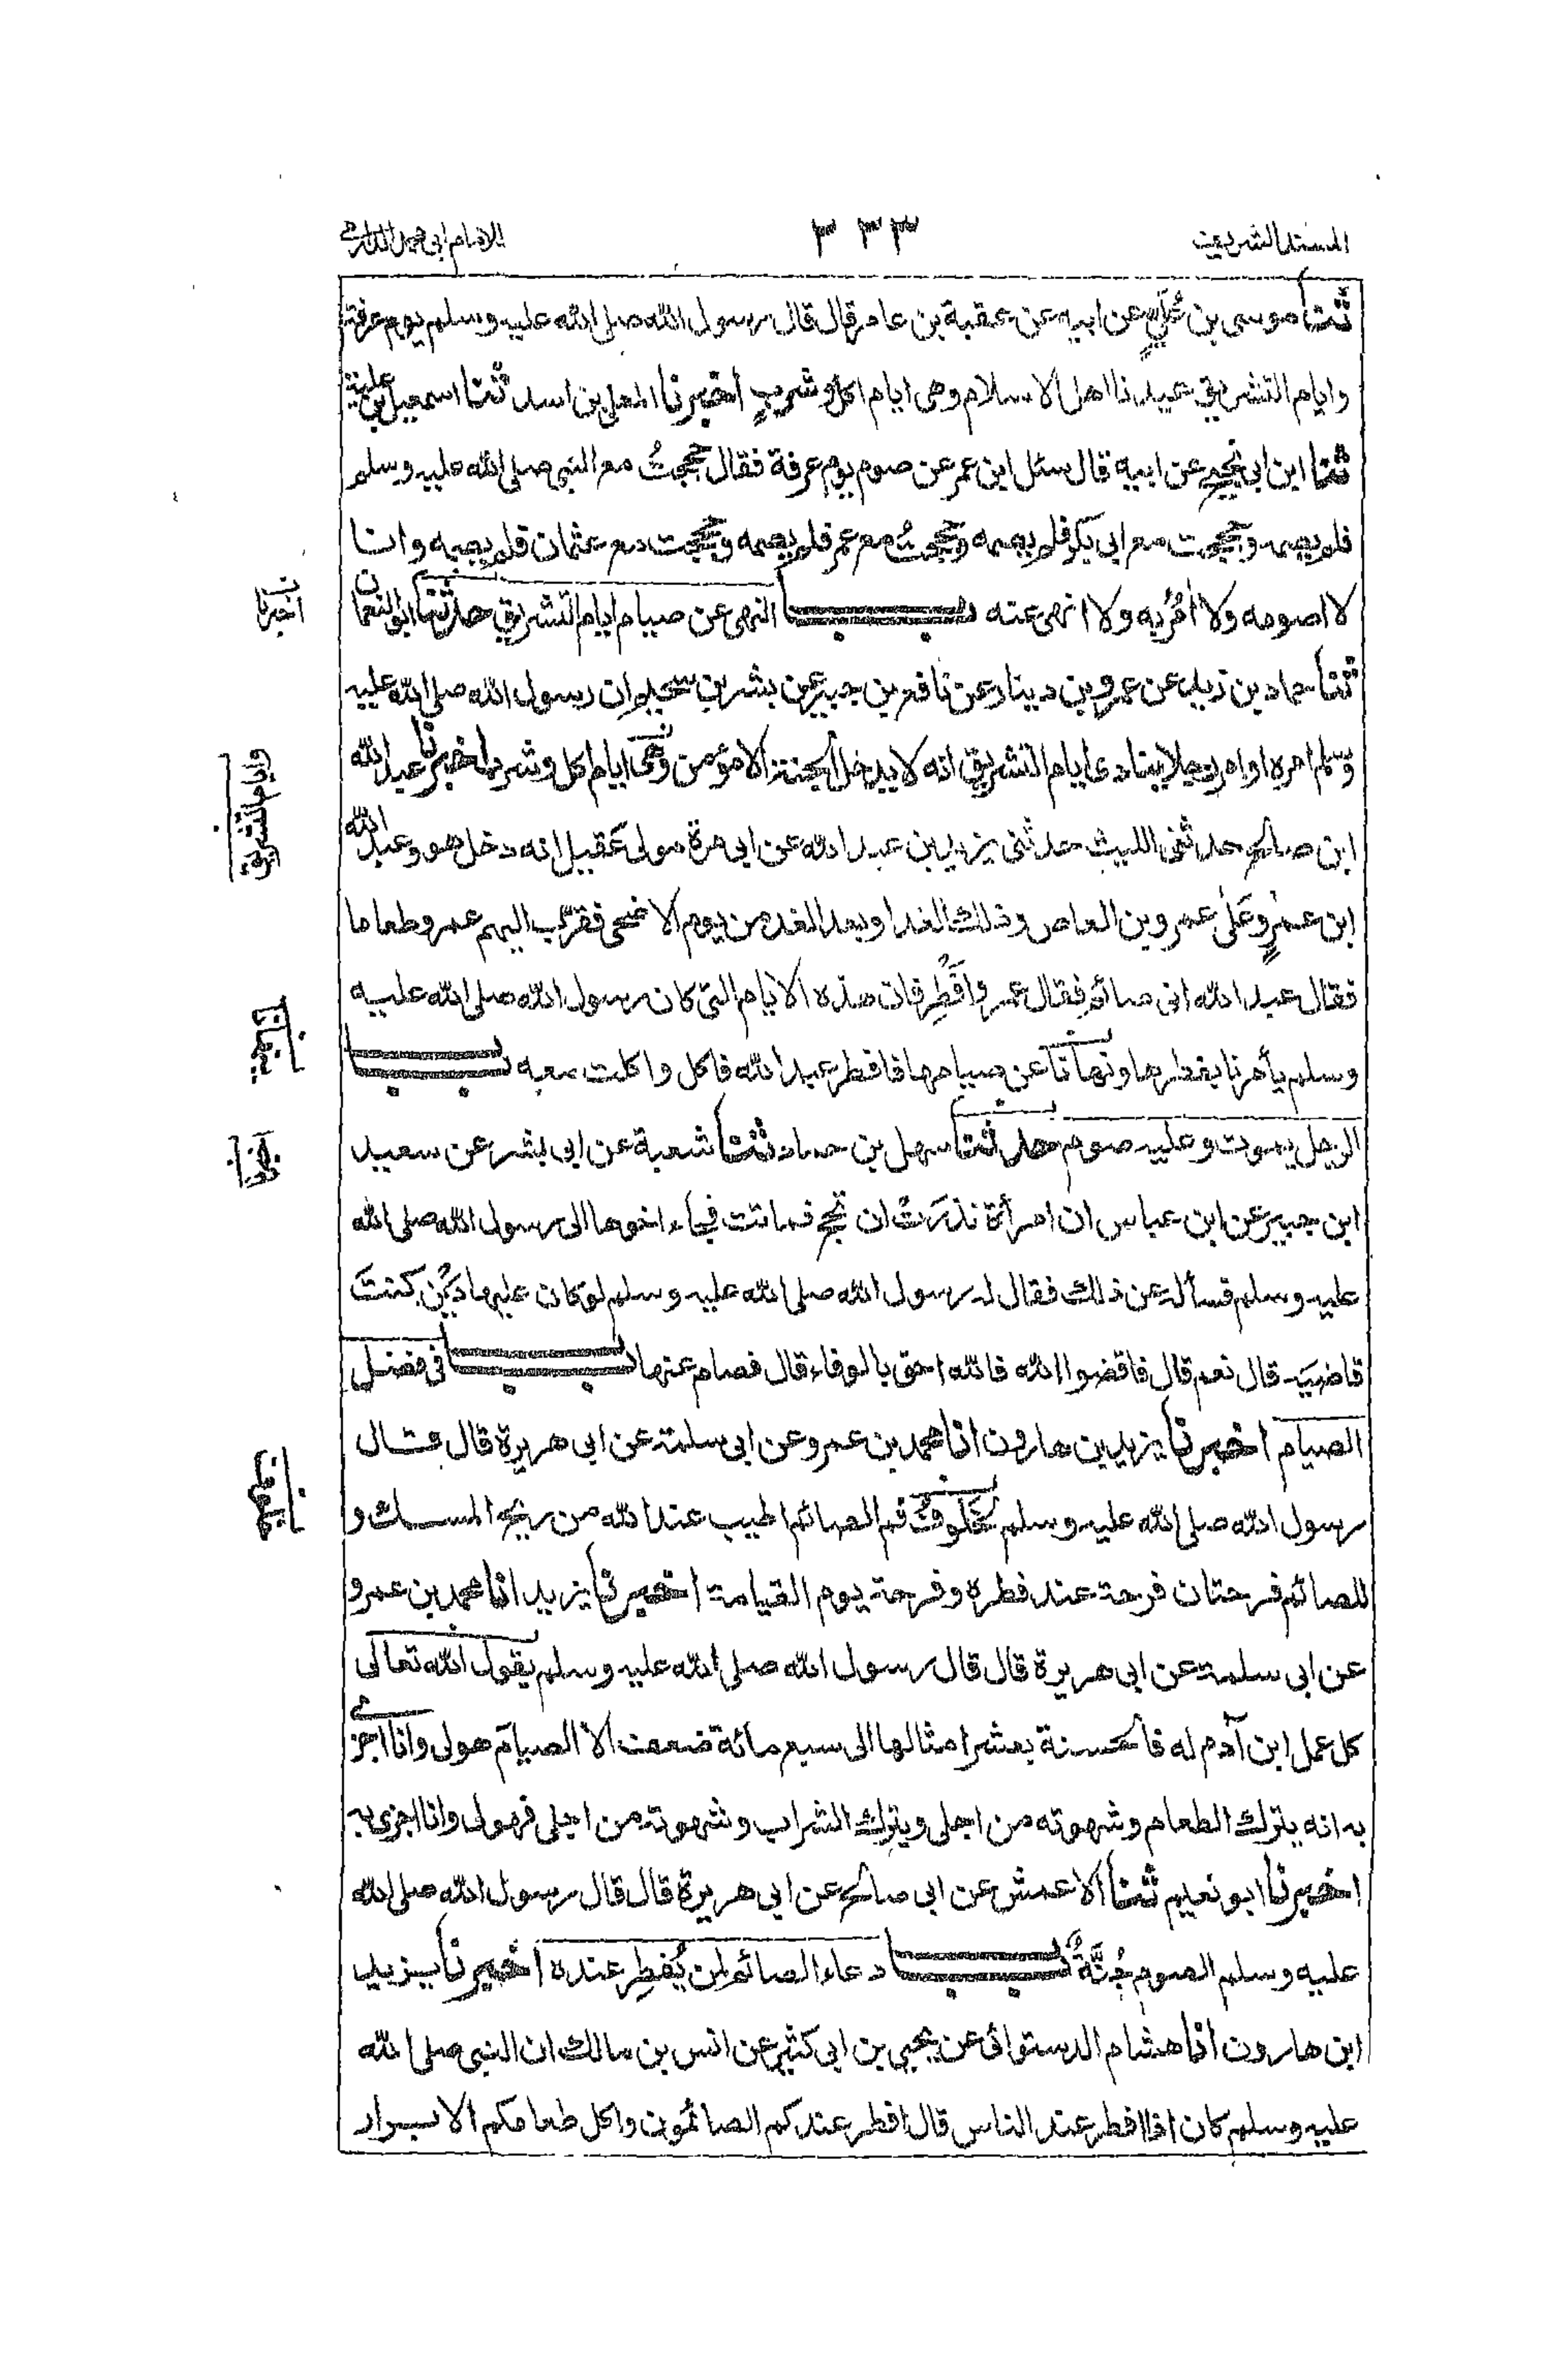 المسند الشريف
٢٣٣
للامام ابي محمد الدارمي
ثنا موسى بن عُلَيٍّ عن ابيه عن عقبة بن عامر قال قال رسول الله صلى الله عليه وسلم يوم عرفة
وايام التشريق عيدنا اهل الاسلام وهى ايام اكل وشربٍ اخبرنا المعلى بن اسد ثنا اسمعيل بن علية
ثنا ابن ابى نجيحٍ عن ابيه قال سئل ابن عمر عن صوم يوم عرفة فقال حججتُ مع النبى صلى الله عليه وسلم
فلم يصمه وحججت مع ابى بكر فلم يصمه وحججتُ مع عمر فلم يصمه وحججت مع عثمان فلم يصمه وانا
لا اصومه ولا اٰمُرُ به ولا انهى عنه باب النهى عن صيام ايام التشريق حدثنا ابو النعمان
اخبرنا ن
ثنا حماد بن زيد عن عمرو بن دينار عن نافع بن جبير عن بشر بن سحيم ان رسول الله صلى الله عليه
وسلم امره او امر رجلا ينادى ايام التشريق انه لا يدخل الجنة الا مؤمن وهى ايام اكل وشرب اخبرنا عبد الله
وايام التشريق
ابن صالح حدثنى الليث حدثنى يزيد بن عبد الله عن ابى مرة مولى عقيل انه دخل هو وعبد الله
ابن عمرٍو عَلٰى عمرو بن العاص وذلك الغد او بعد الغد من يوم الاضحى فقرَّب اليهم عمرو طعاما
فقال عبد الله انى صائم فقال عمرو اَفْطِر فان هذه الايام التى كان رسول الله صلى الله عليه
وسلم يأمرنا بفطرها ونهانا عن صيامها فافطر عبد الله فاكل واكلت معه باب
ينهانا
الرجل يموت وعليه صوم حدثنا سهل بن حماد ثنا شعبة عن ابى بشر عن سعيد
اخبرنا
ابن جبير عن ابن عباس ان امرأة نذرَتْ ان تحج فماتت فجاء اخوها الى رسول الله صلى الله
عليه وسلم فسأله عن ذلك فقال له رسول الله صلى الله عليه وسلم لو كان عليها دَيْن كنتَ
قاضيَه قال نعم قال فاقضوا الله فالله احق بالوفاء قال فصام عنها باب فى فضل
الصيام اخبرنا يزيد بن هارون انا محمد بن عمرو عن ابى سلمة عن ابى هريرة قال قال
رسول الله صلى الله عليه وسلم لخُلُوفُ فم الصائم اطيب عند الله من ريح المسك و
للصائم فرحتان فرحة عند فطره وفرحة يوم القيامة اخبرنا يزيد انا محمد بن عمرو
عن ابى سلمة عن ابى هريرة قال قال رسول الله صلى الله عليه وسلم يقول الله تعالى
كل عمل ابن آدم له فالحسنة بعشر امثالها الى سبع مائة ضعف الا الصيام هو لى وانا اجزى
به انه يترك الطعام وشهوته من اجلى ويترك الشراب وشهوته من اجلى فهو لى وانا اجزى به
اخبرنا ابو نعيم ثنا الاعمش عن ابى صالح عن ابى هريرة قال قال رسول الله صلى الله
عليه وسلم الصوم جُنَّةٌ باب دعاء الصائم لمن يُفطِر عنده اخبرنا يزيد
ابن هارون انا هشام الدستوائى عن يحيى بن ابى كثير عن انس بن مالك ان النبى صلى الله
عليه وسلم كان اذا افطر عند الناس قال افطر عندكم الصائمون واكل طعامكم الابرار